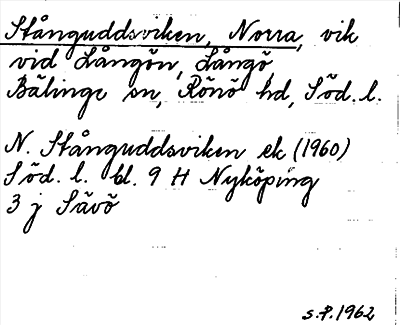 Stånguddsviken, Norra, vik
vid Långön, Långö,
Bälinge sn, Rönö hd, Söd. l.
N. Stånguddsviken ek (1960)
Söd. l. bl. 9 H Nyköping
3 j Sävö
S.P. 1962